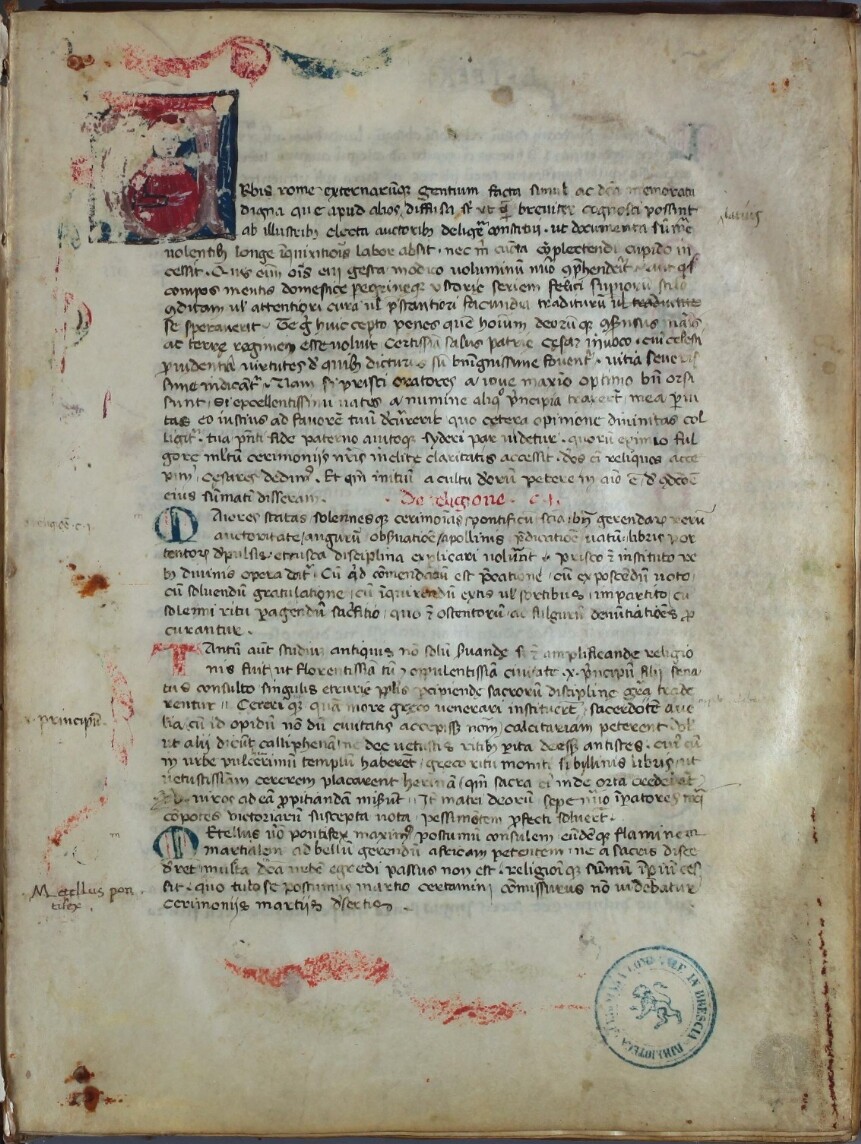 Rbis rome externarumq; gentium facta simul ac dca memoratu
digna que apud alios diffusa st ut qz breviter cognosci possint
ab illustribz electa auctoribz deligere constitui. ut documenta sume
volentibz longe iquisitiois labor absit. nec m cucta coplectendi cupido in
cessit. Quis eim ois evi gesta modico voluminu nuo
compos mentis domestice peregrineq; ystorie seriem felici supioru stilo
qditam ul attentiori cura ul pstantiori facundia traditurum
se speraverit. Te g huic cepto penes que hoium deoruq; cosensus maris
ac terre regimen esse voluit certissia salus patrie Cesar invoco. cui celesti
pvidentia virtutes d quibz dictur su benignissime foventr. vitia severis
sime vindicatr. Nam si prisci oratores a iove maxio optimo bn orsi
sunt. Si excellentissimi vates a numine aliq pncipia traxert. mea pvi
tas eo iustius ad favore tuu decurerit quo cetera opinione divinitas col
ligitr. tua pnti fide paterno avitoq; syderi par videtur. quoru eximio ful
gore multu cerimoniis nris inclite claritatis accessit. deos ei reliquos acce
pim; cesares dedim;. Et qm initiu a cultu deoru petere in aio e d
eius sumati disseram. De religione. c. i.
Aiores statas solennesq; cerimoias pontificu scia bn gerendar reru
auctoritate auguru observatioe apollinis pdicatioe vatu libris por
tentor depulsis etrusca disciplina explicari volunt. prisco z instituto re
bz divinis opera datr. Cu qd comendandu est pcatione cu exposcedu voto
cu solvendu gratulatione cu iquirendu extis ul sortibus impartito cu
solemni ritu pagendu sacrifitio quo z ostentoru ac fulguru denutiatioes p
curantur.
Antu aut studiu antiquis no solu servande sz z amplificande religio
nis fuit ut florentissia tu z opulentissia civitate .x. pncipu filii sena
tus consulto singulis etrurie pplis pcipiende sacroru discipline gra trade
rentur. Cereri q; qua more greco venerari instituert sacerdote a ve
lia cu id opidu no du civitatis accepiss nom calcitariam peterent
ut alii dicut calliphena ne dee vetustis ritibz pita deess antistes. cui cu
in urbe pulcerimu templu haberet greco ritu moniti sibyllinis libris ut
vetustissiam cererem placarent
viros ad ea ppitianda misert. It matri deoru sepe nuo ipatores nri
copotes victoriaru suscepta vota pessinutem pfecti solvert.
Etellus vo pontifex maxim; postumu consulem eundeq; flaminem
martialem ad bellu gerendu africam petentem ne a sacris disce
deret multa dca urbe egredi passus non est. religioiq; sumu ipiu ces
sit. quo tuto se postumius martio certamini comissurus no videbatur
cerimoniis martiis desertis.
.x. principu
Metellus pon
tifex.
BIBLIOTECA IN BRESCIA